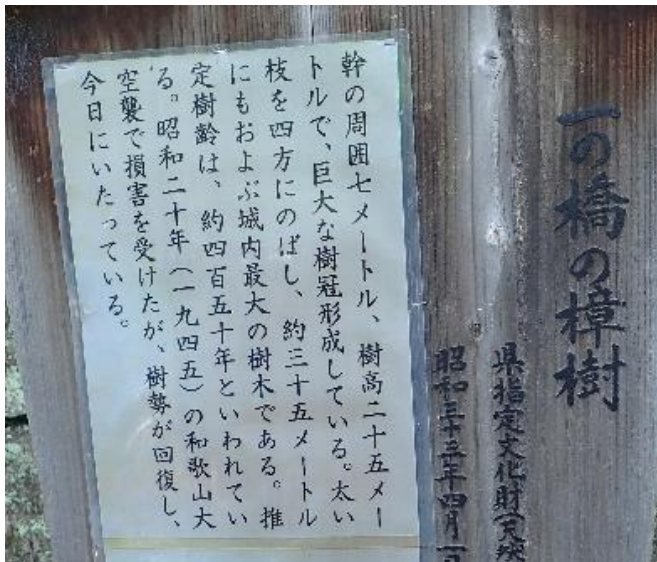 一の橋の樟樹
県指定文化財(天然
昭和三十三年四月一日
幹の周囲七メートル、樹高二十五メー
トルで、巨大な樹冠形成している。太い
枝を四方にのばし、約三十五メートル
にもおよぶ城内最大の樹木である。推
定樹齢は、約四百五十年といわれてい
る。昭和二十年(一九四五)の和歌山大
空襲で損害を受けたが、樹勢が回復し、
今日にいたっている。